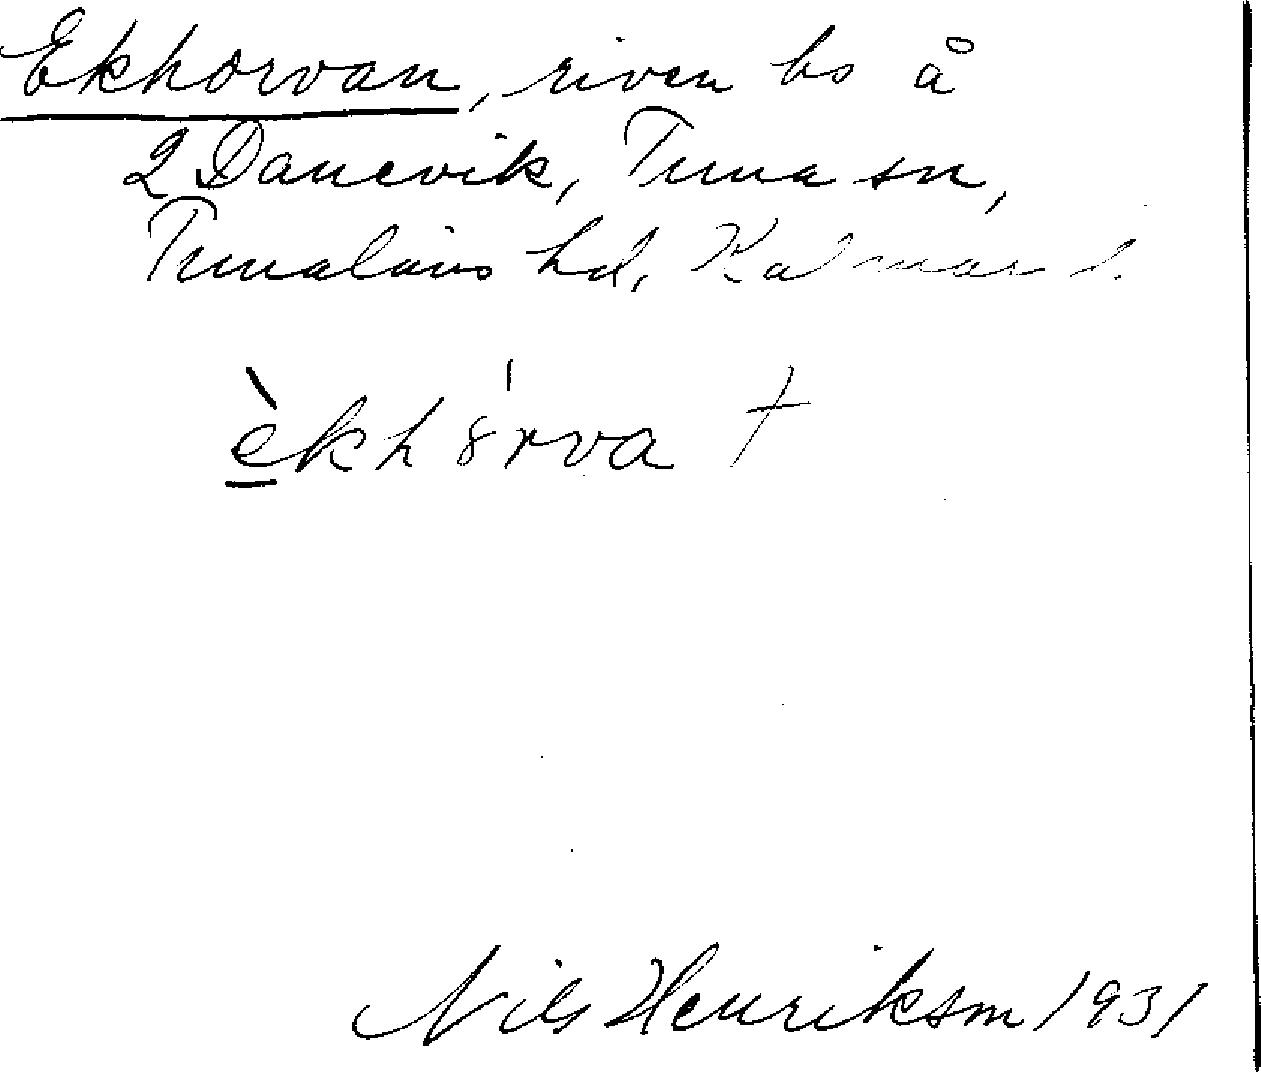 Ekhorvan, riven bs å
2 Danevik, Tuna sn,
Tunaläns hd, Kalmar l.
èkhȣ́rva †
Nils Henrikson 1931